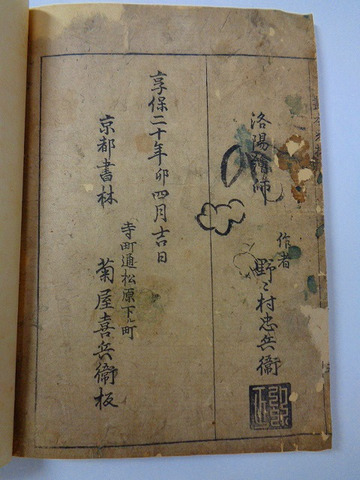 洛陽繪師
作者
野々村忠兵衞
享保二十年卯四月吉日
京都書林
寺町通松原下ル町
菊屋喜兵衞板